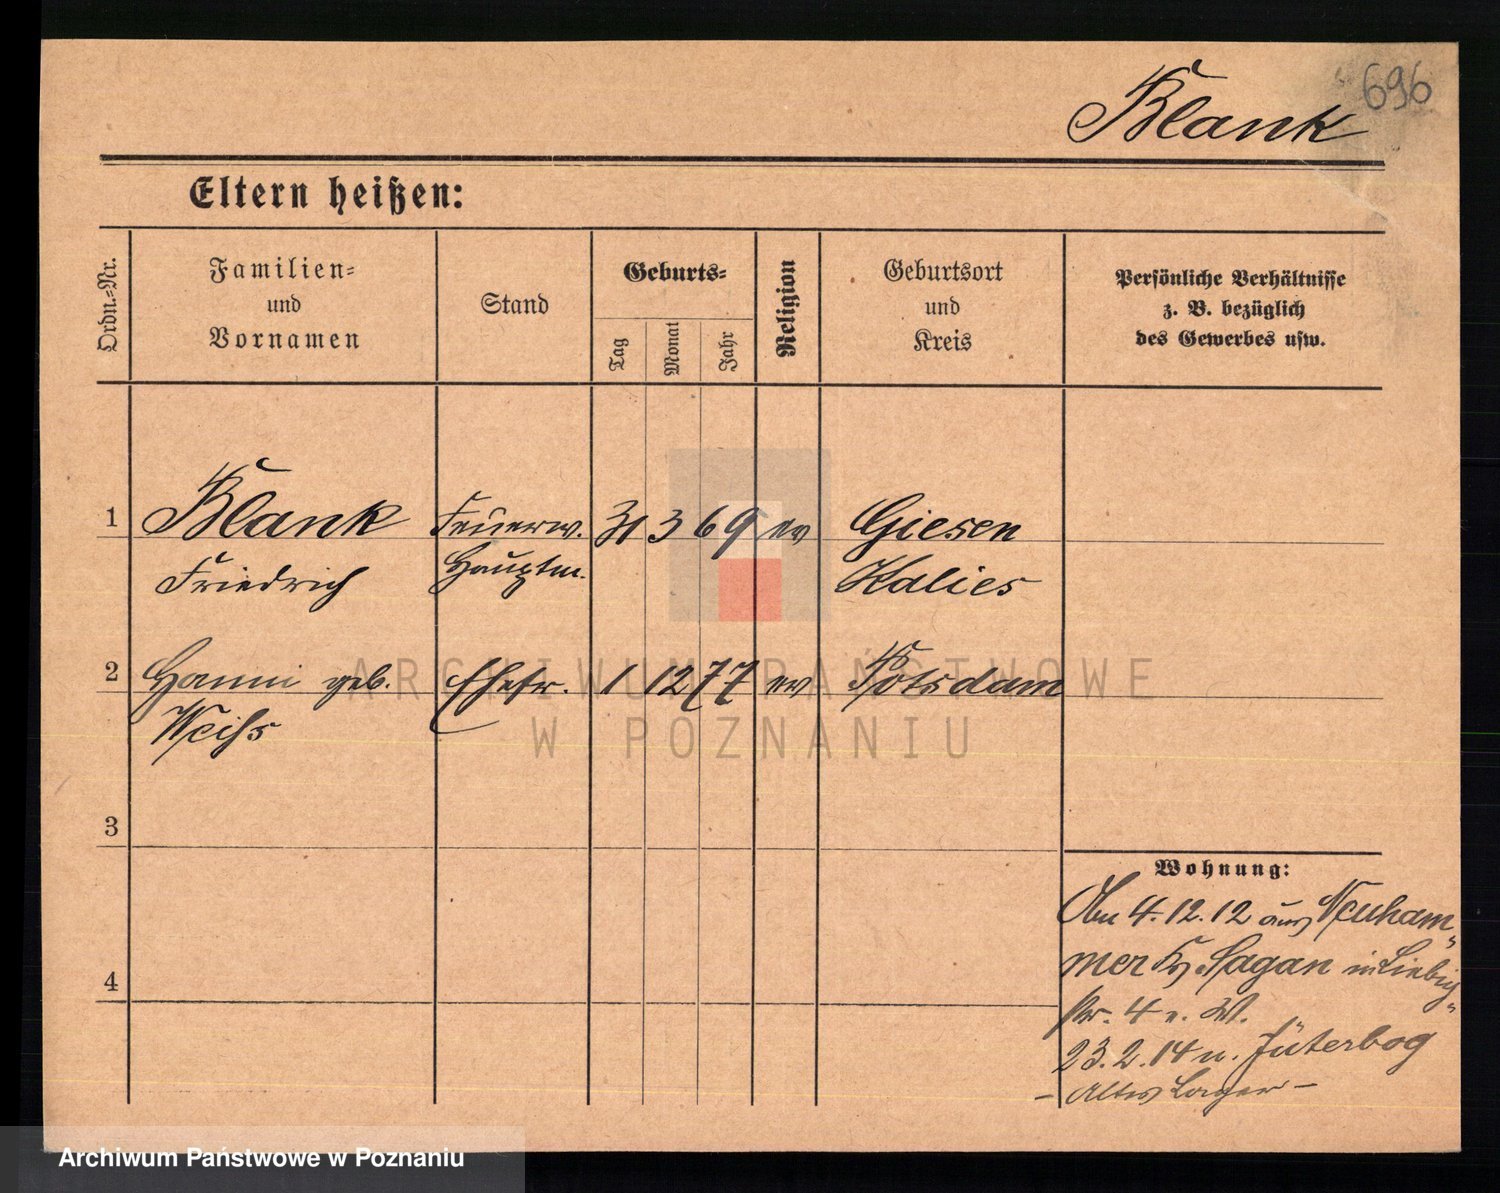 696
Blank
Eltern heißen:
Ordn.=Nr.
Familien=
und
Vornamen
Stand
Geburts=
Tag
Monat
Jahr
Religion
Geburtsort
und
Kreis
Persönliche Verhältnisse
z. B. bezüglich
des Gewerbes usw.
1 Blank Feuerw. 31 3 69 ev Giesen
Friedrich Hauptm. Kalies
2 Hanni geb. Ehefr. 1 12 77 ev Potsdam
Weihs
3
4
Wohnung:
4.12.12 aus Neuham„
mer Kr Sagan in Liebig„
str. 4 v. W.
23.2.14 n. Jüterbog
– Altes Lager –
ARCHIWUM PAŃSTWOWE
W POZNANIU
Archiwum Państwowe w Poznaniu